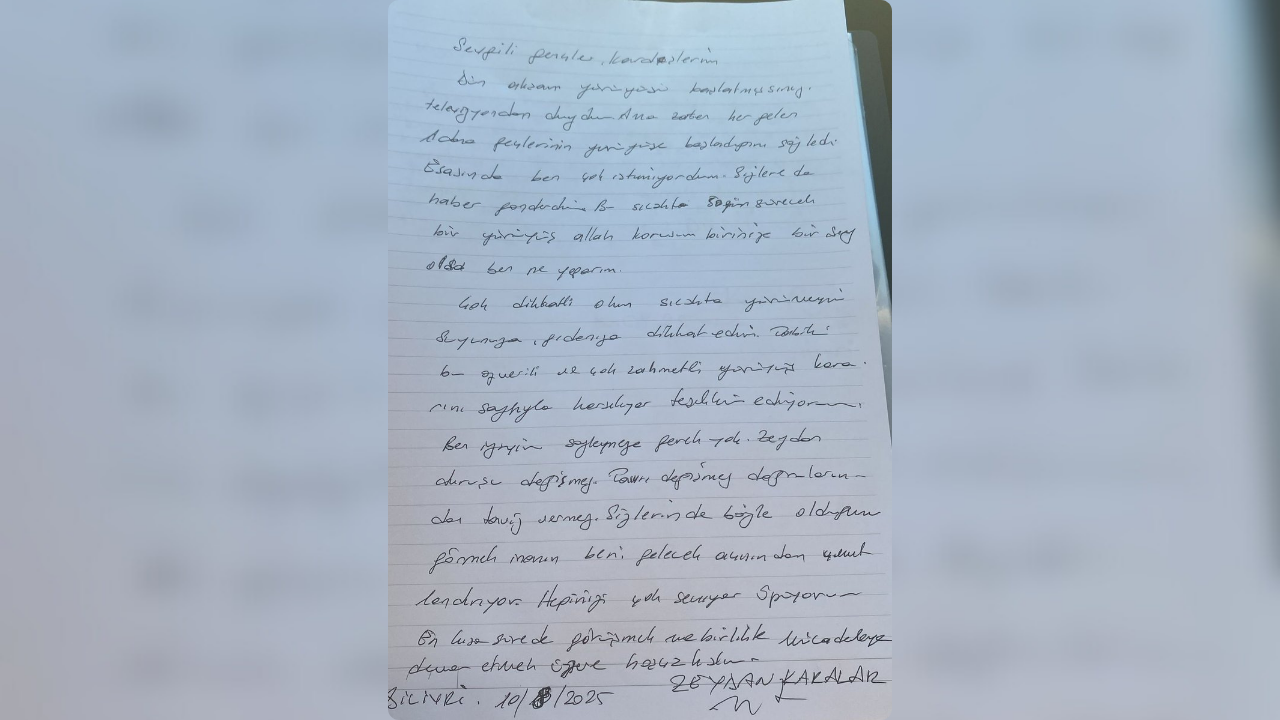 Sevgili gençler, kardeşlerim
Dün akşam yürüyüşü başlatmışsınız.
televizyondan duydum Ama zaten her gelen
Adana gençlerinin yürüyüşe başladığını söyledi.
Esasında ben çok istemiyordum. Sizlere de
haber gönderdim. Bu sıcakta 20 gün sürecek
bir yürüyüş allah korusun birinize bir şey
olsa ben ne yaparım.
Çok dikkatli olun sıcakta yürümeyin
Suyunuza, gıdanıza dikkat edin. Tabiki
bu özverili ve çok zahmetli yürüyüş kara-
rını saygıyla karşılıyor teşekkür ediyorum.
Ben için söylemeye gerek yok. Zeydan
duruşu değişmez. Tavrı değişmez doğruların-
dan taviz vermez. Sizlerinde böyle olduğunu
görmek inanın beni gelecek açısından umut-
landırıyor. Hepinizi çok seviyor öpüyorum
En kısa sürede görüşmek ve birlikte mücadeleye
devam etmek üzere hoşçakalın.
ZEYDAN KARALAR
SİLİVRİ. 10/8/2025